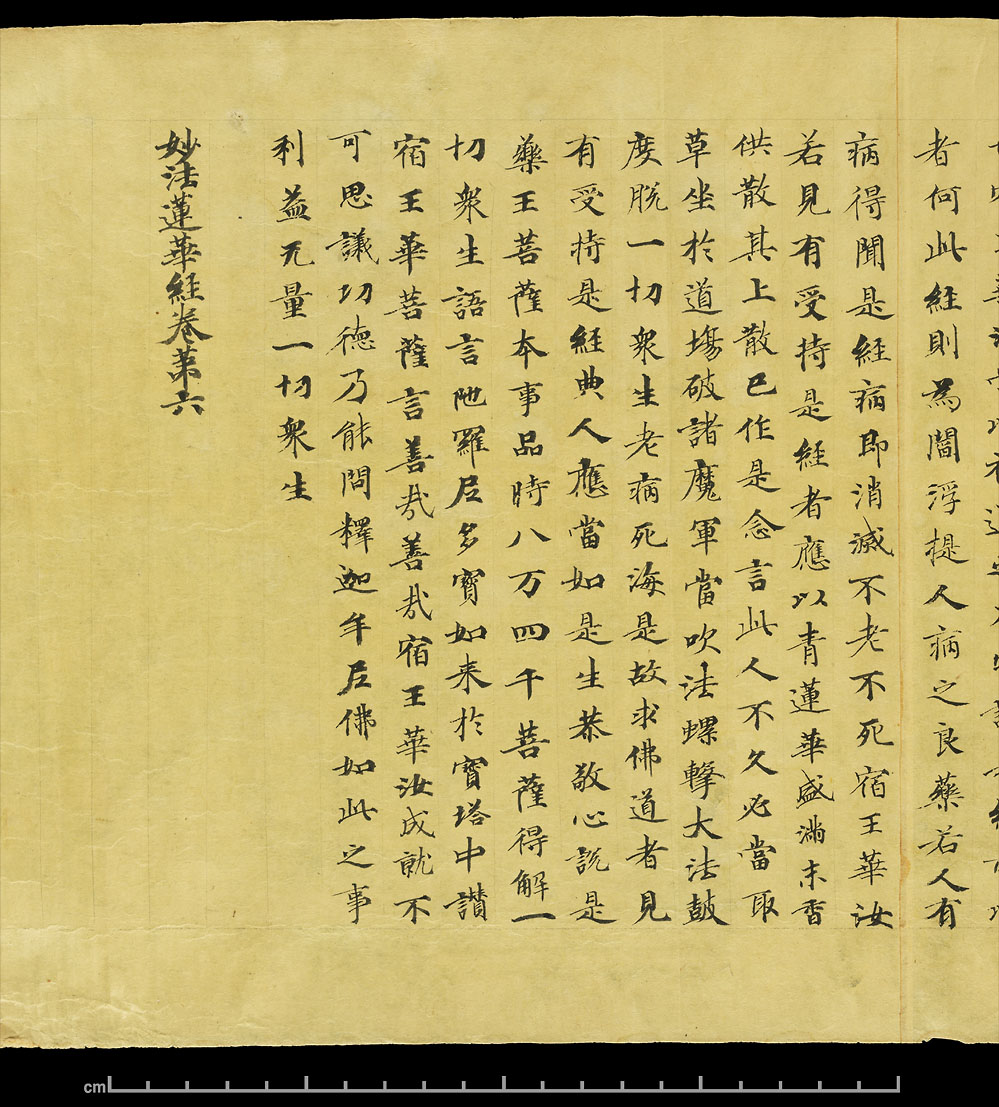 者何此経則為閻浮提人病之良藥若人有
病得聞是経病即消滅不老不死宿王華汝
若見有受持是経者應以青蓮華盛滿末香
供散其上散已作是念言此人不久必當取
草坐於道塲破諸魔軍當吹法螺擊大法鼓
度脫一切衆生老病死海是故求佛道者見
有受持是経典人應當如是生恭敬心說是
藥王菩薩本事品時八万四千菩薩得解一
切衆生語言陁羅尼多寶如来於寶塔中讃
宿王華菩薩言善哉善哉宿王華汝成就不
可思議功德乃能問釋迦牟尼佛如此之事
利益无量一切衆生
妙法蓮華経卷第六
cm